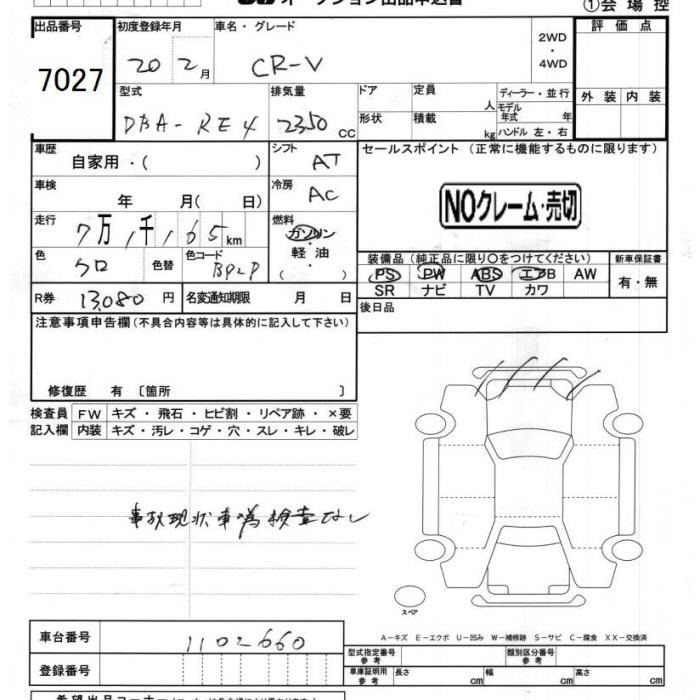 オークション出品申込書
①会場控
出品番号 初度登録年月 車名・グレード 評価点
7027 20 2月 CR-V 2WD・4WD
外装 内装
型式 排気量 ドア 定員 人 ディーラー・並行
DBA-RE4 2350cc 形状 積載 kg モデル年式 年
ハンドル 左・右
車歴 自家用・( ) シフト AT セールスポイント (正常に機能するものに限ります)
車検 年 月( 日) 冷房 AC NOクレーム・売切
走行 7万1千165km 燃料 ガソリン・軽油・( )
色 クロ 色替 色コード BP2P
装備品(純正品に限り○をつけてください) 新車保証書
PS PW ABS エアB AW 有・無
SR ナビ TV カワ
R券 13,080円 名変通知期限 月 日 後日品
注意事項申告欄(不具合内容等は具体的に記入して下さい)
修復歴 有〔箇所 〕
検査員 FW キズ・飛石・ヒビ割・リペア跡・×要
記入欄 内装 キズ・汚レ・コゲ・穴・スレ・キレ・破レ
事故現状車の為検査なし
スペア
A-キズ E-エクボ U-凹み W-補修跡 S-サビ C-腐食 XX-交換済
車台番号 1102660
型式指定番号 参考 類別区分番号 参考
登録番号 車庫証明用 参考 長さ cm 幅 cm 高さ cm